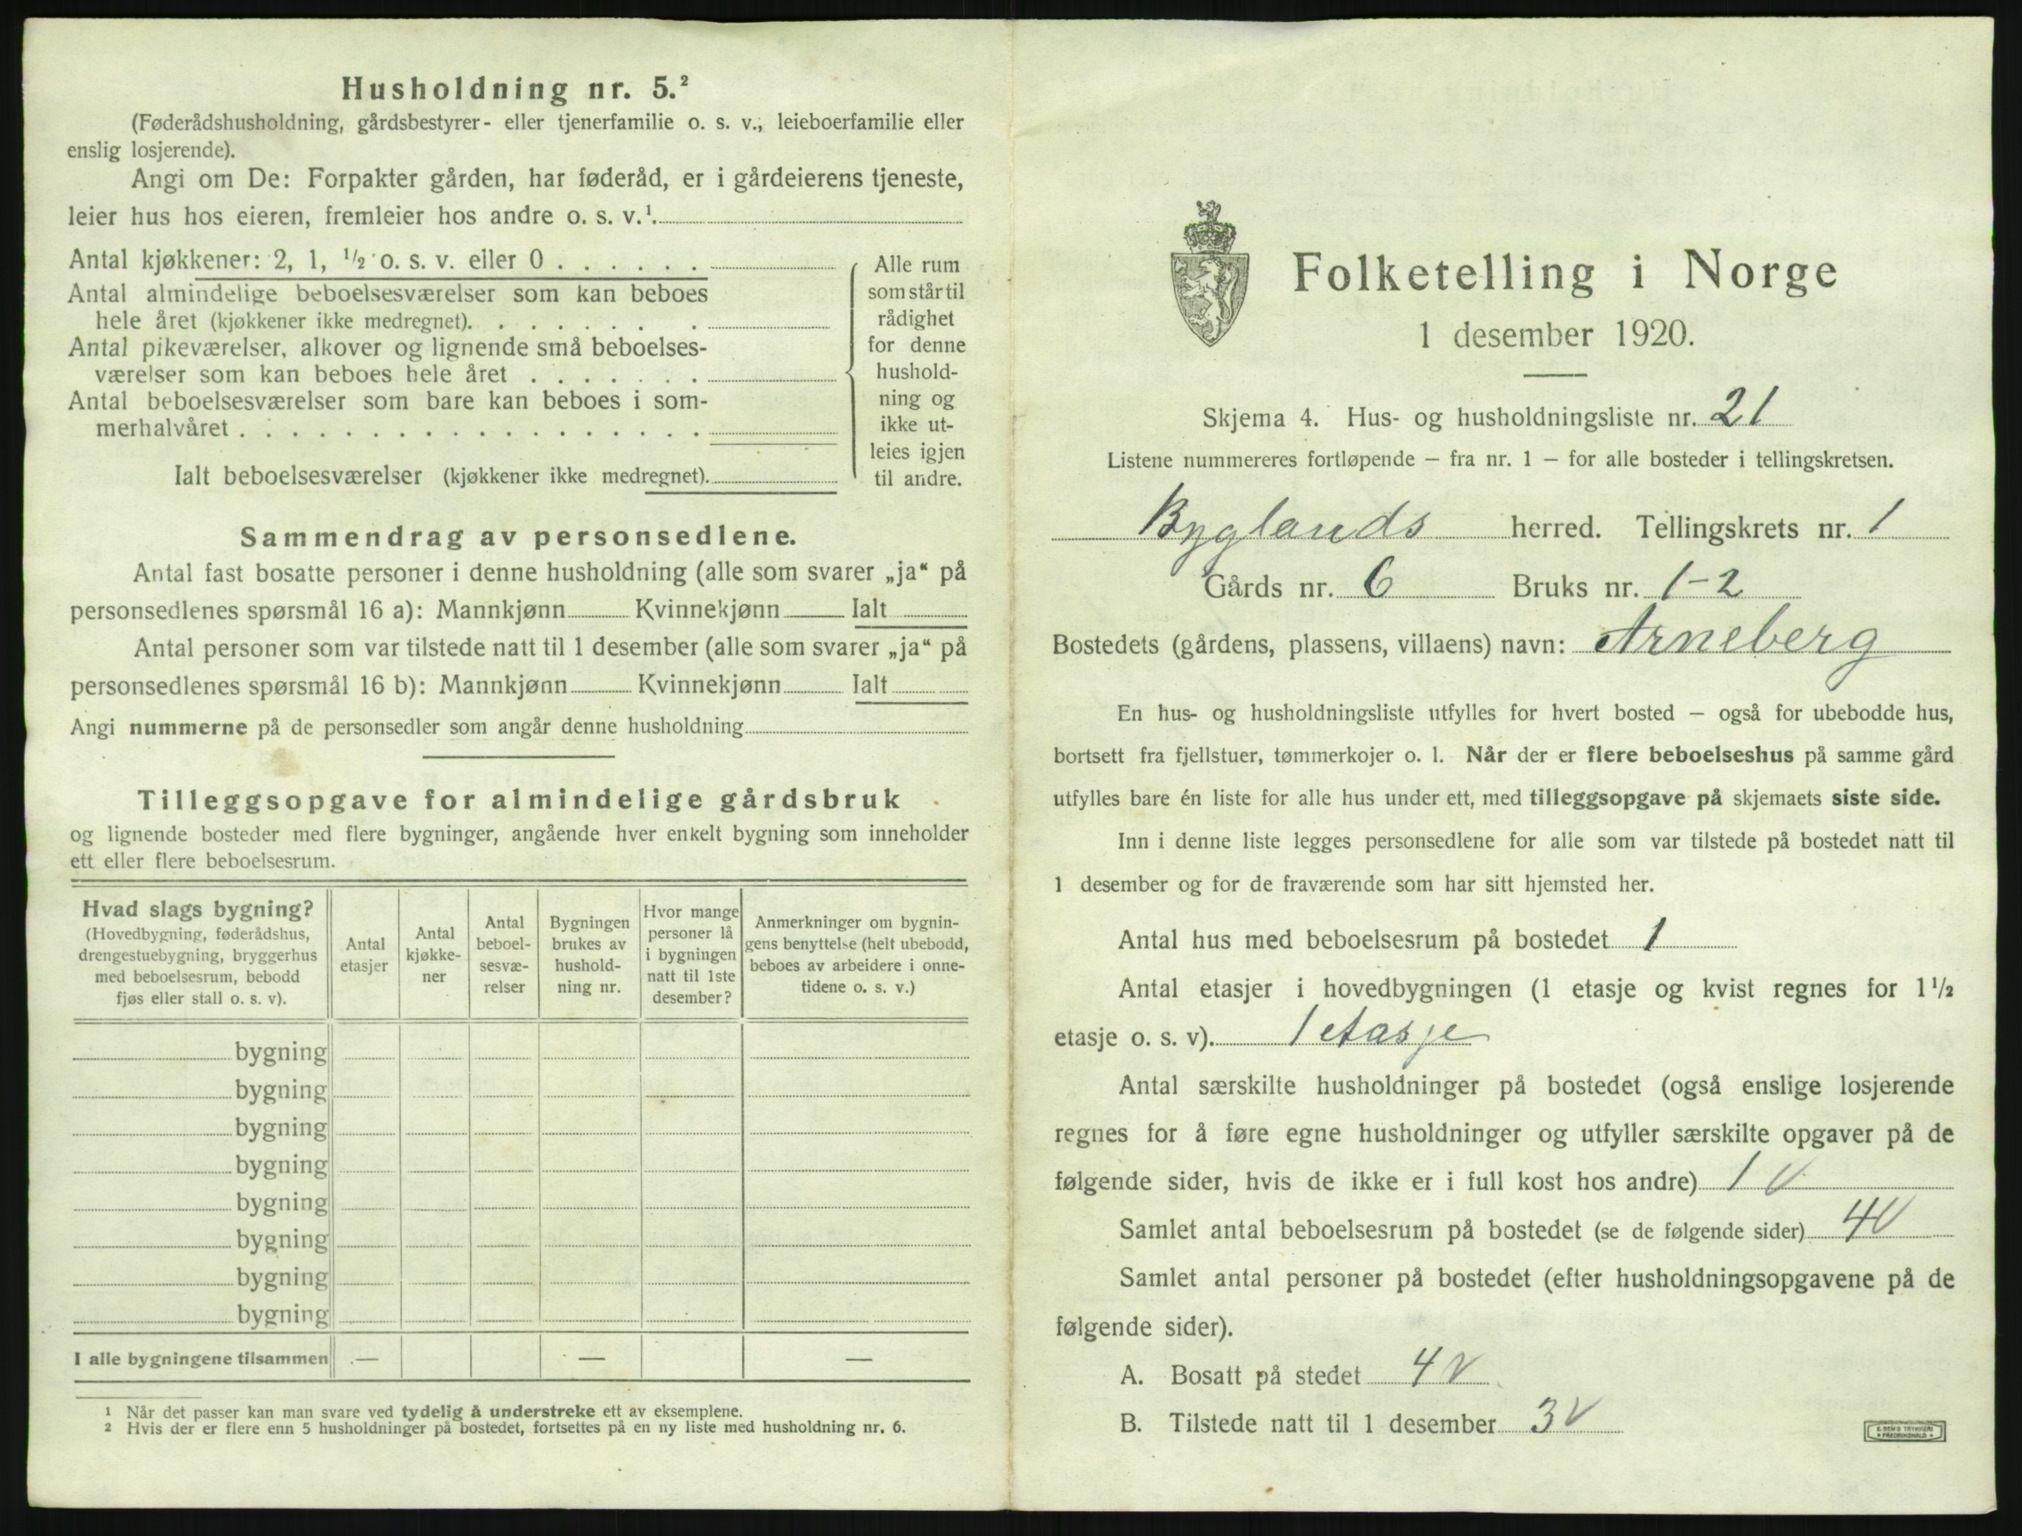 Husholdning nr. 5.²
(Føderådshusholdning, gårdsbestyrer- eller tjenerfamilie o. s. v., leieboerfamilie eller
enslig losjerende).
Angi om De: Forpakter gården, har føderåd, er i gårdeierens tjeneste,
leier hus hos eieren, fremleier hos andre o. s. v.¹
Antal kjøkkener: 2, 1, ½ o. s. v. eller 0
Antal almindelige beboelsesværelser som kan beboes
hele året (kjøkkener ikke medregnet).
Antal pikeværelser, alkover og lignende små beboelses-
værelser som kan beboes hele året
Antal beboelsesværelser som bare kan beboes i som-
merhalvåret
Ialt beboelsesværelser (kjøkkener ikke medregnet).
Alle rum
som står til
rådighet
for denne
hushold-
ning og
ikke ut-
leies igjen
til andre.
Sammendrag av personsedlene.
Antal fast bosatte personer i denne husholdning (alle som svarer „ja“ på
personsedlenes spørsmål 16 a): Mannkjønn Kvinnekjønn Ialt
Antal personer som var tilstede natt til 1 desember (alle som svarer „ja“ på
personsedlenes spørsmål 16 b): Mannkjønn Kvinnekjønn Ialt
Angi nummerne på de personsedler som angår denne husholdning
Tilleggsopgave for almindelige gårdsbruk
og lignende bosteder med flere bygninger, angående hver enkelt bygning som inneholder
ett eller flere beboelsesrum.
Hvad slags bygning?
(Hovedbygning, føderådshus,
drengestuebygning, bryggerhus
med beboelsesrum, bebodd
fjøs eller stall o. s. v).
Antal
etasjer
Antal
kjøkke-
ner
Antal
beboel-
sesvæ-
relser
Bygningen
brukes av
hushold-
ning nr.
Hvor mange
personer lå
i bygningen
natt til 1ste
desember?
Anmerkninger om bygnin-
gens benyttelse (helt ubebodd,
beboes av arbeidere i onne-
tidene o. s. v.)
bygning
bygning
bygning
bygning
bygning
bygning
bygning
bygning
I alle bygningene tilsammen — — —
¹ Når det passer kan man svare ved tydelig å understreke ett av eksemplene.
² Hvis der er flere enn 5 husholdninger på bostedet, fortsettes på en ny liste med husholdning nr. 6.
Folketelling i Norge
1 desember 1920.
Skjema 4. Hus- og husholdningsliste nr. 21
Listene nummereres fortløpende – fra nr. 1 – for alle bosteder i tellingskretsen.
Byglands herred. Tellingskrets nr. 1
Gårds nr. 6 Bruks nr. 1-2
Bostedets (gårdens, plassens, villaens) navn: Arneberg
En hus- og husholdningsliste utfylles for hvert bosted – også for ubebodde hus,
bortsett fra fjellstuer, tømmerkojer o. l. Når der er flere beboelseshus på samme gård
utfylles bare én liste for alle hus under ett, med tilleggsopgave på skjemaets siste side.
Inn i denne liste legges personsedlene for alle som var tilstede på bostedet natt til
1 desember og for de fraværende som har sitt hjemsted her.
Antal hus med beboelsesrum på bostedet 1
Antal etasjer i hovedbygningen (1 etasje og kvist regnes for 1½
etasje o. s. v). 1 etasje
Antal særskilte husholdninger på bostedet (også enslige losjerende
regnes for å føre egne husholdninger og utfyller særskilte opgaver på de
følgende sider, hvis de ikke er i full kost hos andre) 1 V
Samlet antal beboelsesrum på bostedet (se de følgende sider) 4 V
Samlet antal personer på bostedet (efter husholdningsopgavene på de
følgende sider).
A. Bosatt på stedet 4 V
B. Tilstede natt til 1 desember 3 V